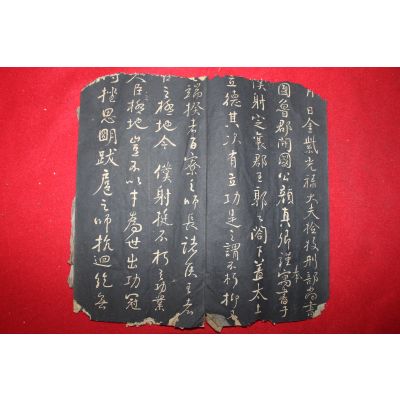 月日金紫光祿大夫檢校刑部尚書
國魯郡開國公顏真卿謹寓書于
奉
僕射定襄郡王郭公閤下蓋太上
立德其次有立功是之謂不朽抑
端揆者百寮之師長諸侯王者
之極地今僕射挺不朽之功業
人臣極地豈不以才為世出功冠
時挫思明跋扈之師抗迴紇無